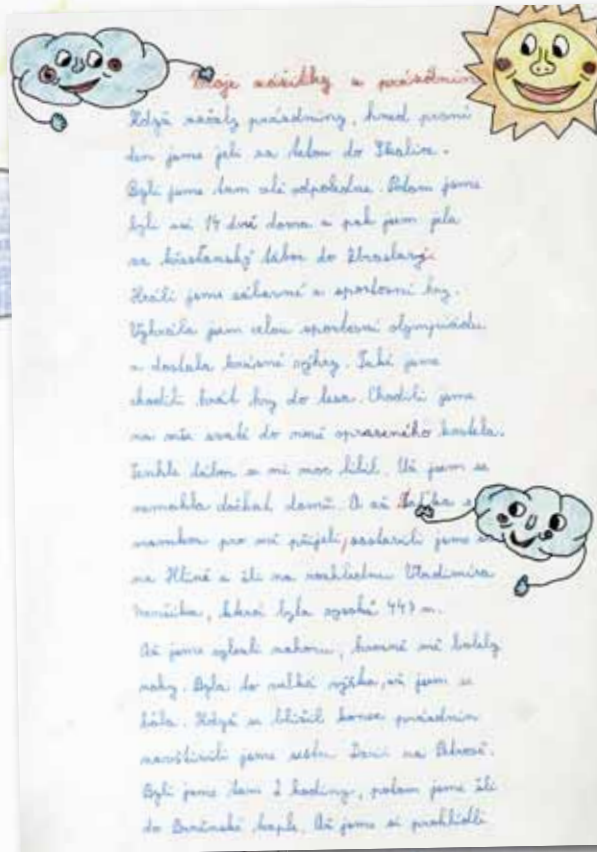 Moje zážitky z prázdnin
Když začaly prázdniny, hned první
den jsme jeli za tetou do Skalice.
Byli jsme tam celé odpoledne. Potom jsme
byli asi 14 dní doma a pak jsem jela
na křesťanský tábor do
Hráli jsme zábavné a sportovní hry.
Vyhrála jsem celou sportovní olympiádu
a dostala krásné výhry. Také jsme
chodili hrát hry do lesa. Chodili jsme
na mše svaté do nově opraveného kostela.
Tenhle tábor se mi moc líbil. Už jsem se
nemohla dočkat domů. A až
mamkou pro mě přijeli, zastavili jsme
na Hlíně a šli na rozhlednu Vladimíra
Menšíka, která byla vysoká 443 m.
Až jsme vylezli nahoru, hrozně mě bolely
nohy. Byla to velká výška, až jsem se
bála. Když se blížil konec prázdnin
navštívili jsme sestru Darii na Petrově.
Byli jsme tam 2 hodiny, potom jsme šli
do kaple. Až jsme si prohlédli